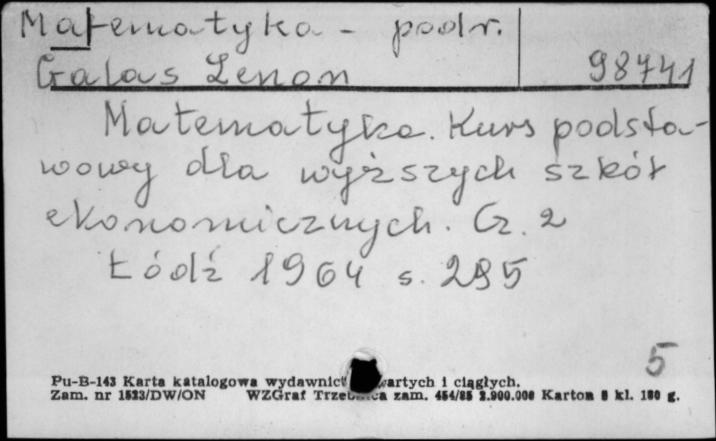 Matematyka - podr.
Galas Zenon 98741
Matematyka. Kurs podsta-
wowy dla wyższych szkół
ekonomicznych. Cz. 2
Łódź 1964 s. 295
5
Pu-B-143 Karta katalogowa wydawnict wartych i ciągłych.
Zam. nr 1523/DW/ON WZGraf zam. 454/85 2.900.000 Karton kl. 180 g.